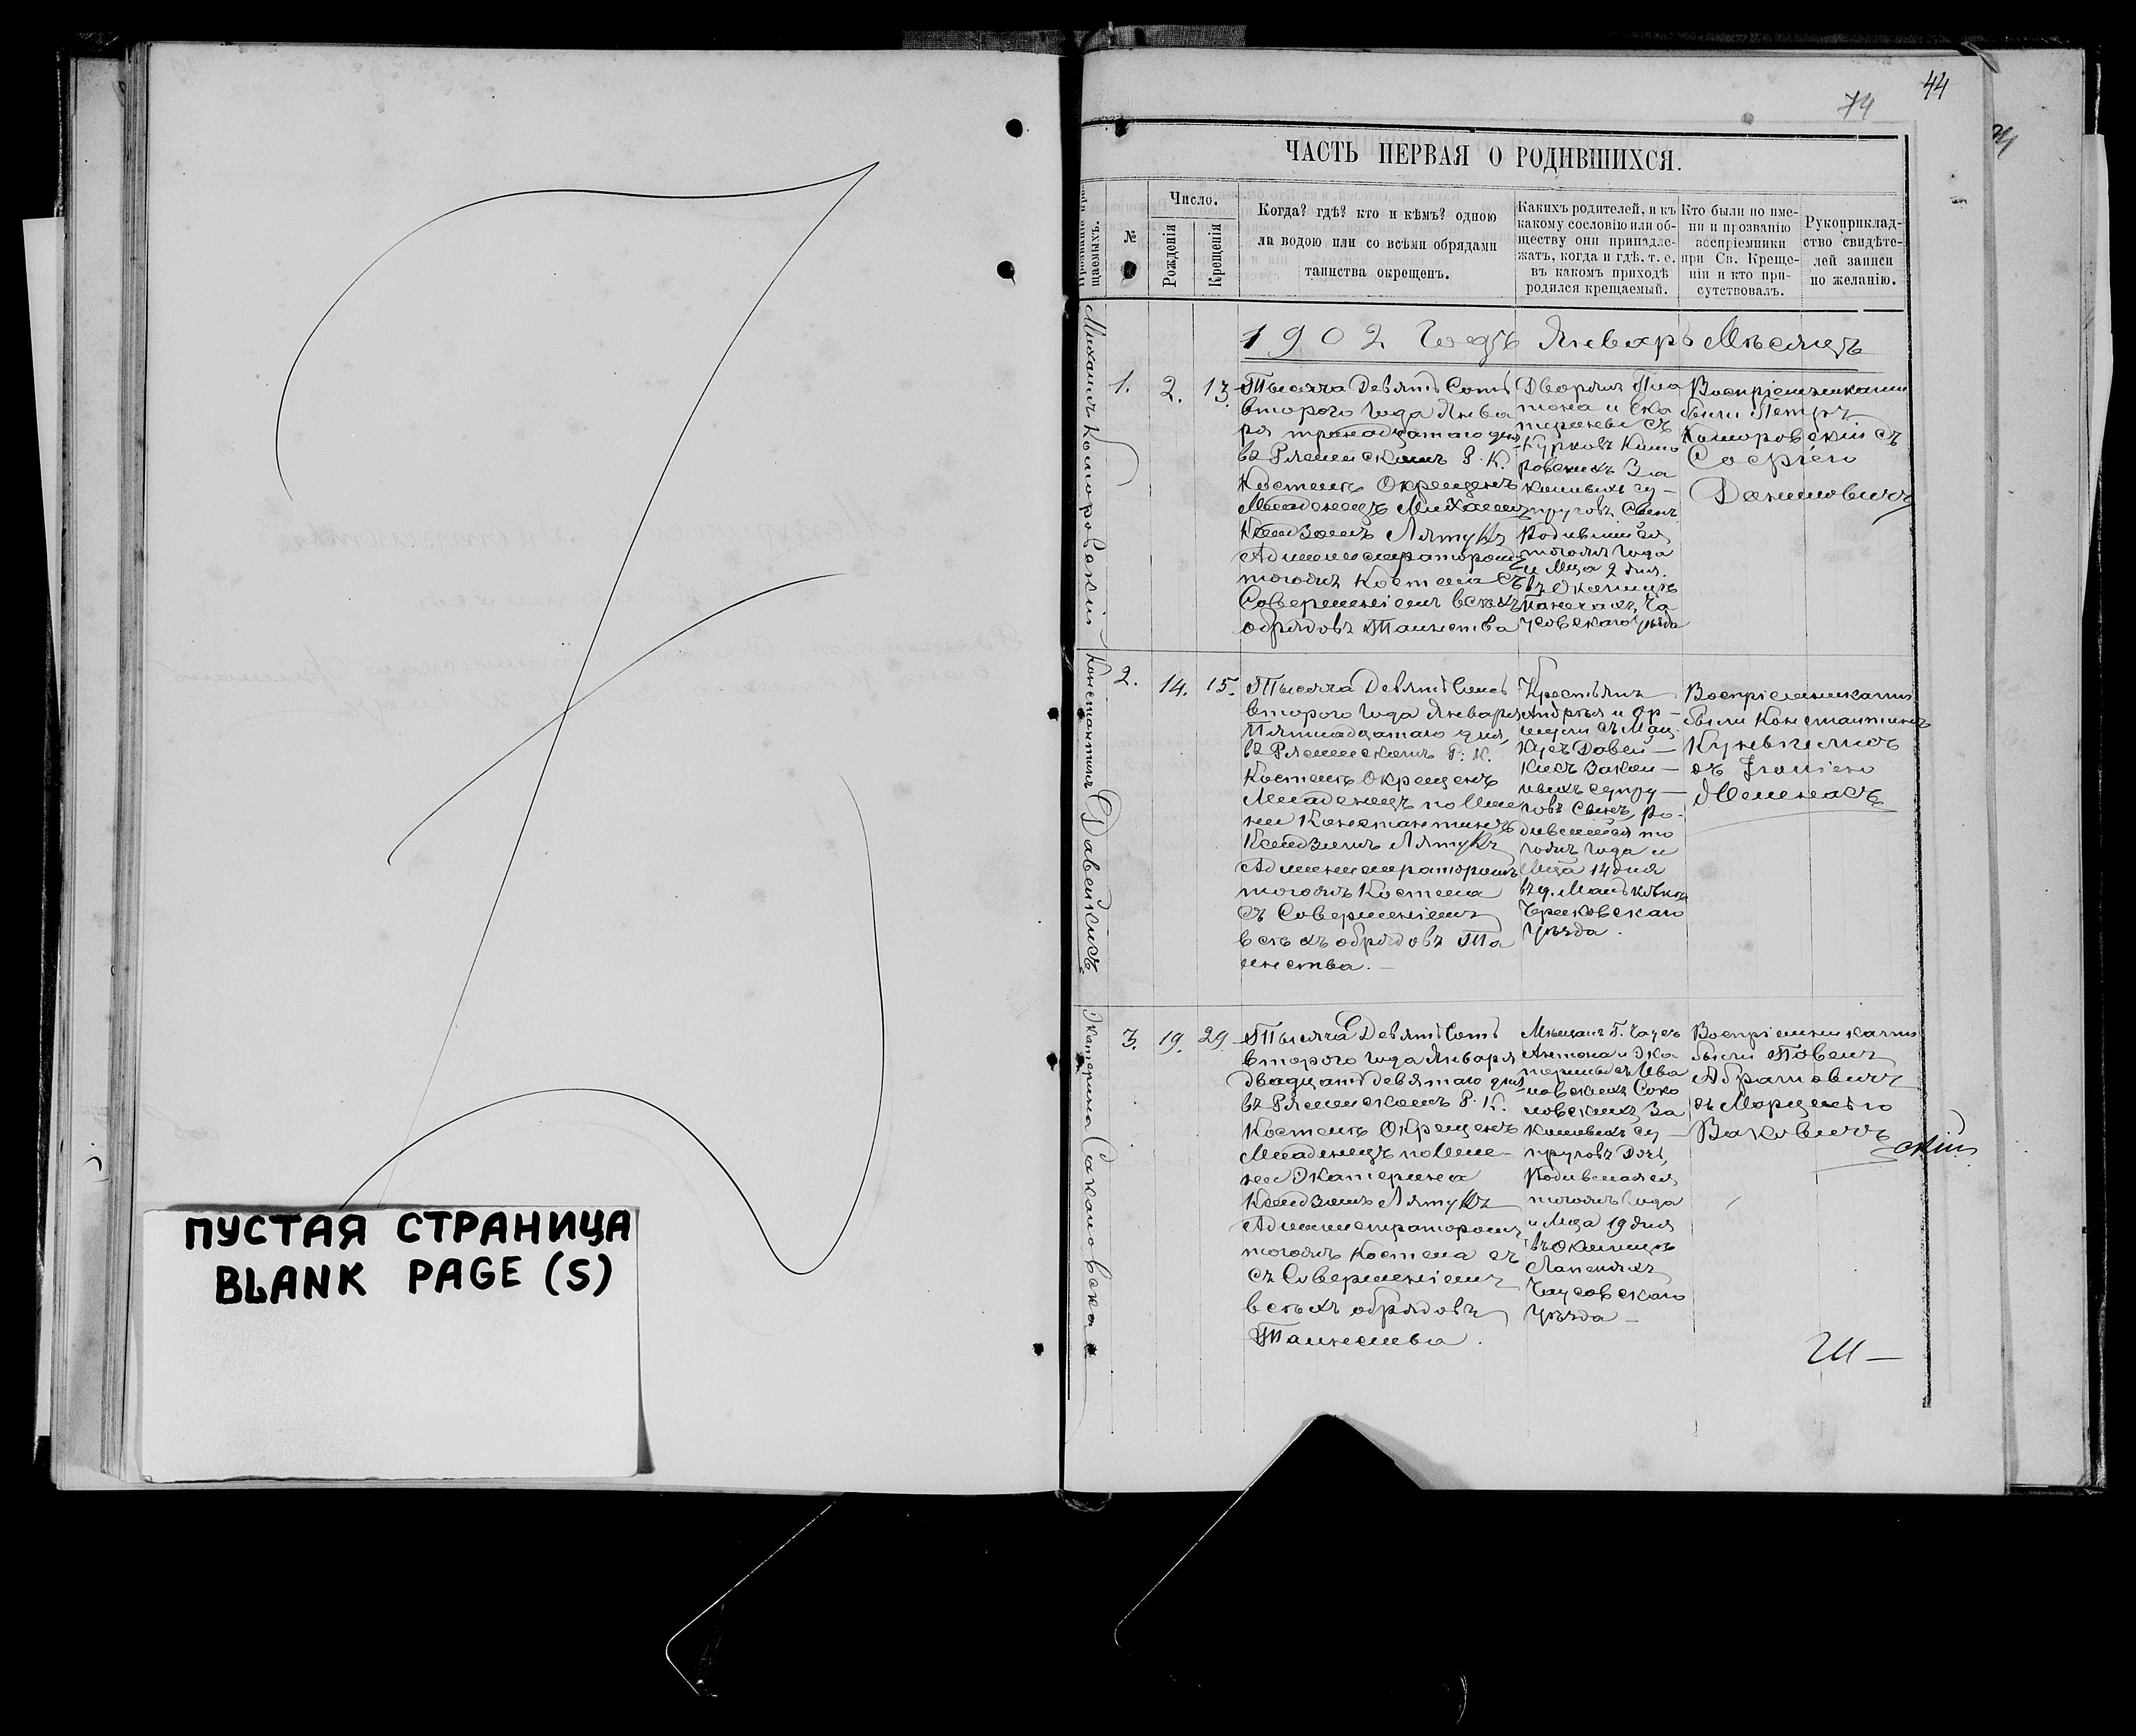 44
74
ЧАСТЬ ПЕРВАЯ О РОДИВШИХСЯ.
№
Число.
Рожденія
Крещенія
Когда? гдѣ? кто и кѣмъ? одною
ли водою или со всѣми обрядами
таинства окрещенъ.
Какихъ родителей, и къ
какому сословію или об-
ществу они принадле-
жатъ, когда и гдѣ, т. е.
въ какомъ приходѣ
родился крещаемый.
Кто были по име-
ни и прозванію
воспріемники
при Св. Креще-
ніи и кто при-
сутствовалъ.
Рукоприклад-
ство свидѣте-
лей записи
по желанію.
1902 Годъ Январь Мѣсяцъ
Михаилъ Коморовскій
1.
2.
13.
Тысяча Девятьсотъ
второго Года Янва
ря тринадцатаго дня
въ Р. К.
Костелѣ Окрещенъ
Младенецъ Михаилъ
Ксендзомъ Лятукъ
Администраторомъ
тогожъ Костела съ
Совершеніемъ всѣхъ
обрядовъ Таинства
Дворянъ Пла
тона и Ека
терины съ
Комо
ровскихъ За
конныхъ су-
пруговъ Сынъ,
Родившійся
тогожъ Года
и М-ца 2 дня.
въ Околицѣ
Ча
усовскаго Уѣзда
Воспріемниками
были Петръ
Коморовскій съ
Софіею
Даниловичъ
Константинъ Довейкисъ
2.
14.
15.
Тысяча Девятьсотъ
второго Года Января
Пятнадцатаго дня,
въ Р. К.
Костелѣ Окрещенъ
Младенецъ по Име
ни Константинъ
Ксендзомъ Лятукъ
Администраторомъ
тогожъ Костела
съ Совершеніемъ
всѣхъ обрядовъ Та
инства. -
Крестьянъ
Андрея и Ор-
шули съ Мац
кусъ Довей-
кисъ Закон-
ныхъ супру-
говъ Сынъ, Ро-
дившійся то
гожъ Года и
М-ца 14 дня
въ д.
Чериковскаго
Уѣзда.
Воспріемниками
были Константинъ
съ
Экатерина Сакаловска
3.
19.
29
Тысяча Девятьсотъ
второго Года Января
двадцать девятаго дня
въ Р. К.
Костелѣ Окрещенъ
Младенецъ по Име-
ни Экатерина
Ксендзомъ Лятукъ
Администраторомъ
тогожъ Костела съ
съ Совершеніемъ
всѣхъ обрядовъ
Таинства.
Мѣщанъ Г. Чаусъ
Антона и Эка
терины съ Ива
новскихъ Соко
ловскихъ За
конныхъ су-
пруговъ Дочь,
Родившаяся
тогожъ Года
и М-ца 19 дня
въ Околицѣ
Чаусовскаго
Уѣзда -
Воспріемниками
были Павелъ
Абрамовичъ
съ
ПУСТАЯ СТРАНИЦА
BLANK PAGE (S)